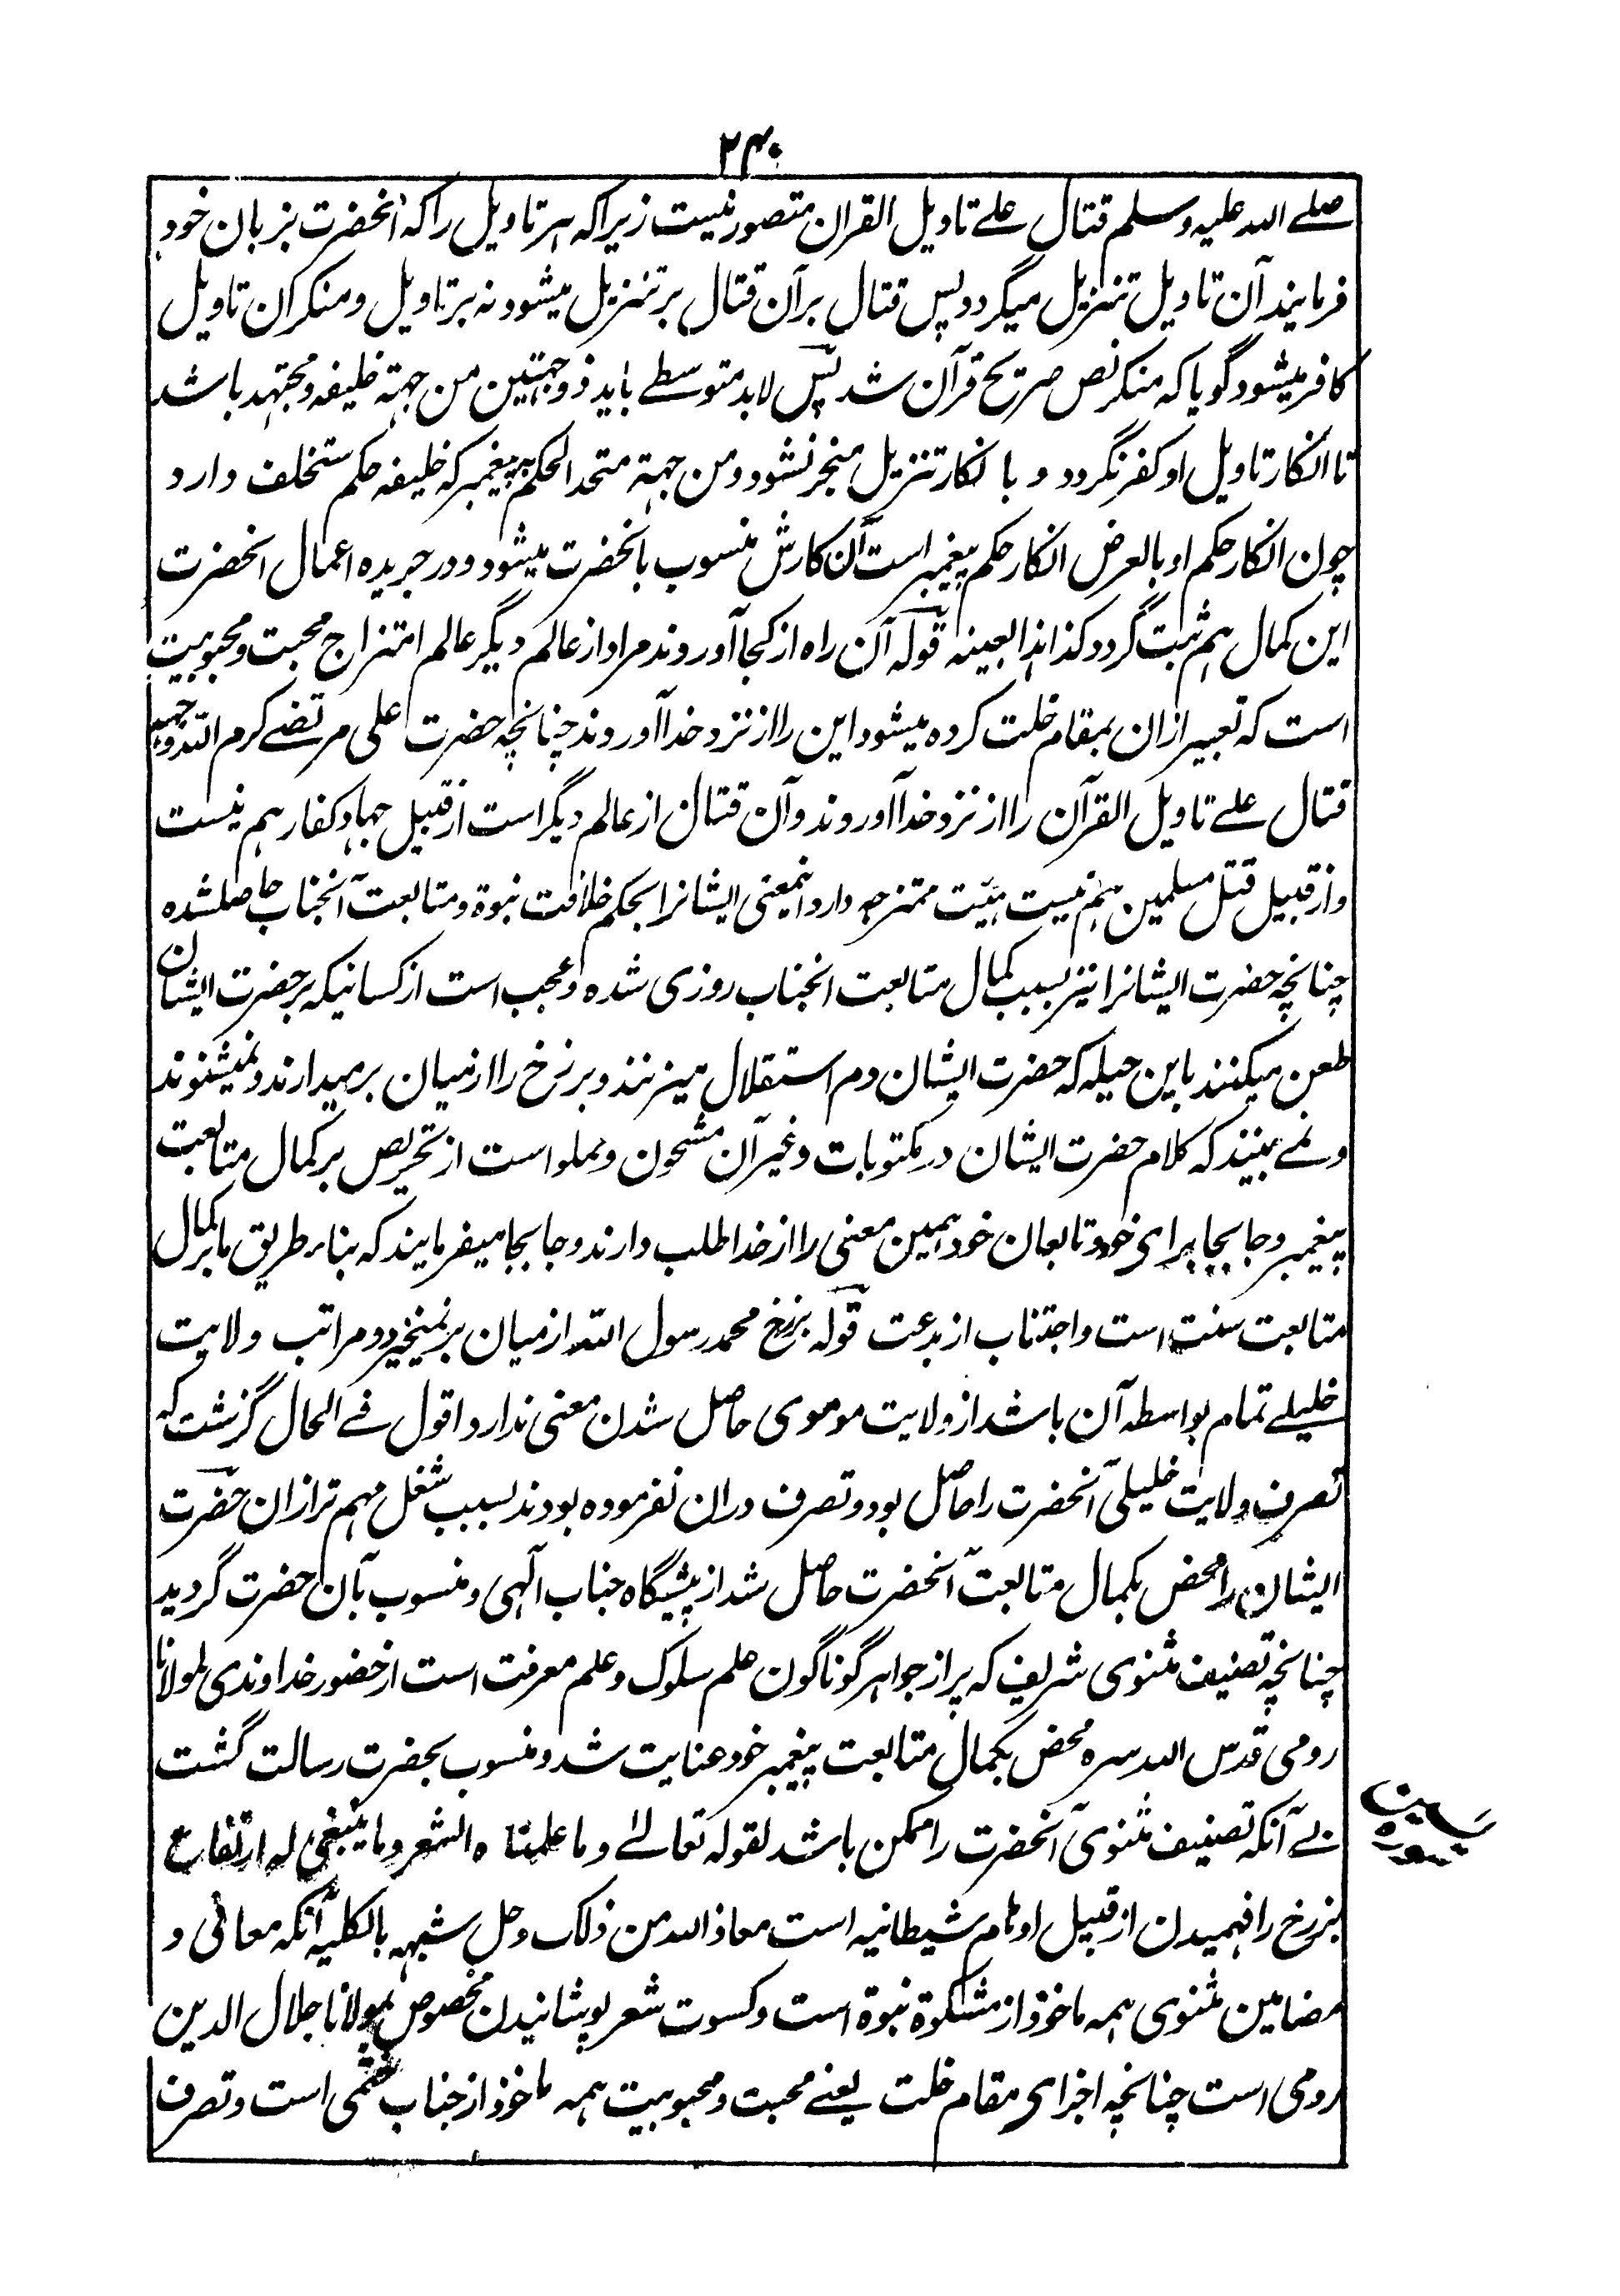 ۲۴۰
صلے اللہ علیہ وسلم قتال علے تاویل القران متصور نیست زیراکہ ہر تاویل راکہ آنحضرت بزبان خود
فرمایند آن تاویل تنزیل میگردد پس قتال برآن قتال بر تنزیل میشود نہ بر تاویل و منکران تاویل
کافر میشود گویا کہ منکر نص صریح قرآن شد پس لابد متوسطے باید ذوجہتین من جہۃ خلیفہ و مجتہد باشد
تا انکار تاویل او کفر نگردد و با نکار تنزیل منجر نشود و من جہۃ متحد الحکم بہ پیغمبر کہ خلیفہ حکم مستخلف دارد
چون انکار حکم او بالعرض انکار حکم پیغمبر است آن کارش منسوب بانحضرت میشود و در جریدہ اعمال انحضرت
این کمال ہم ثبت گردد کذا ہذا بعینہ قولہ آن راہ از کجا آوردند مراد از عالم دیگر عالم امتزاج محبت و محبوبیت
است کہ تعبیر ازان بمقام خلت کردہ میشود این را از نزد خدا آوردند چنانچہ حضرت علی مرتضے کرم اللہ وجہہ
قتال علے تاویل القرآن را از نزد خدا آوردند و آن قتال از عالم دیگر است از قبیل جہاد کفار ہم نیست
و از قبیل قتل مسلمین ہم نیست ہیئت ممتزجہ دارد اینمعنی ایشانرا بحکم خلافت نبوۃ و متابعت آنجناب حاصلشدہ
چنانچہ حضرت ایشانرا نیز بسبب کمال متابعت انجناب روزی شدہ و عجب است از کسانیکہ بر حضرت ایشان
طعن میکنند باین حیلہ کہ حضرت ایشان دم استقلال میزنند و برزخ را از میان برمیدارند و نمیشنوند
و نمے بینند کہ کلام حضرت ایشان در مکتوبات و غیر آن مشحون و مملو است از تحریص بر کمال متابعت
پیغمبر و جابجا برای خود و تابعان خود ہمین معنی را از خدا طلب دارند و جابجا میفرمایند کہ بناء طریق ما بر کمال
متابعت سنت است و اجتناب از بدعت قولہ برزخ محمد رسول اللہ از میان برنمیخیزد و مراتب ولایت
خلیلے تمام بواسطہ آن باشد از ولایت موسوی حاصل شدن معنی ندارد اقول فے الحال گزشت کہ
تصرف ولایت خلیلی آنحضرت را حاصل بود و تصرف دران نفرمودہ بودند بسبب شغل مہم تر ازان حضرت
ایشان را محض بکمال متابعت آنحضرت حاصل شد از پیشگاہ جناب الٰہی و منسوب بآن حضرت گردید
چنانچہ تصنیف مثنوی شریف کہ پر از جواہر گوناگون علم سلوک و علم معرفت است از حضور خداوندی بمولانا
رومی قدس اللہ سرہ محض بکمال متابعت پیغمبر خود عنایت شد و منسوب بحضرت رسالت گشت
بے آنکہ تصنیف مثنوی آنحضرت را ممکن باشد لقولہ تعالےٰ وما علمناہ الشعر وما ینبغی لہ ارتفاع
برزخ را فہمیدن از قبیل اوہام شیطانیہ است معاذ اللہ من ذلک و حل شبہہ بالکلیہ آنکہ معانی و
مضامین مثنوی ہمہ ماخوذ از مشکوۃ نبوۃ است و کسوت شعر پوشانیدن مخصوص بمولانا جلال الدین
رومی است چنانچہ اجزای مقام خلت یعنے محبت و محبوبیت ہمہ ماخوذ از جناب ختمی است و تصرف
سورہ یٰسین